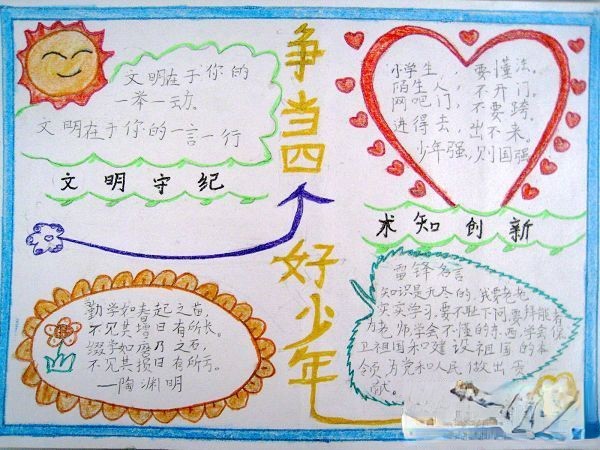 文明在于你的
一举一动.
文明在于你的一言一行
文明守纪
争当四好少年
小学生,要懂法.
陌生人,不开门.
网吧门,不要跨.
进得去,出不来.
少年强,则国强
术知创新
勤学如春起之苗,
不见其增日有所长.
缀学如磨乃之石,
不见其损日有所亏.
—陶渊明
雷锋名言
知识是九乃的.我要老老
实实学习,要不耻下问要拜能者
为老师学会不懂的东西,学会保
卫祖国和建设祖国的本
领,为党和人民做出贡
献.